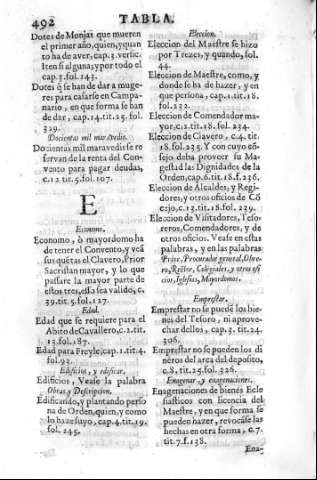 492
TABLA.
Dotes de Monjas que mueren
el primer año, quien, y quan
to ha de aver, cap. 3. versic.
Iten si alguna; y por todo el
cap. 3. fol. 143.
Dotes q̃ se han de dar a muge
res para casarse en Campa-
nario, en que forma se han
de dar, cap. 14. tit. 25. fol.
329.
Docientas mil maravedis.
Docientas mil maravedis se re
servan de la renta del Con-
vento para pagar deudas,
c. 12. tit. 5. fol. 107.
E
Economo.
Economo, ò mayordomo ha
de tener el Convento, y vea
sus quẽtas el Clavero, Prior
Sacristan mayor, y lo que
passare la mayor parte de
estos tres, esso sea valido, c.
39. tit. 5. fol. 127.
Edad.
Edad que se requiere para el
Abito de Cavallero, c. 2. tit.
13. fol. 187.
Edad para Freyle, cap. 1. tit. 4.
fol. 92.
Edificios, y edificar.
Edificios, Vease la palabra
Obras y Descripcion.
Edificando, y plantando perso
na de Orden, quien, y como
lo haze suyo, cap. 4. tit. 19.
fol. 245.
Eleccion.
Eleccion del Maestre se hizo
por Trezes, y quando, sol.
44.
Eleccion de Maestre, como, y
donde se ha de hazer, y en
que persona, cap. 1. tit. 18.
fol. 232.
Eleccion de Comendador ma
yor, c. 2. tit. 18. fol. 234.
Eleccion de Clavero, c. 4. tit.
18. fol. 235. Y con cuyo cõ-
sejo deba proveer su Ma-
gestad las Dignidades de la
Orden, cap. 6. tit. 18. f. 236.
Eleccion de Alcaldes, y Regi-
dores, y otros oficios de Cõ
cejo, c. 13. tit. 18. fol. 239.
Eleccion de Visitadores, Teso-
reros, Comendadores, y de
otros oficios. Vease en estas
palabras, y en las palabras
Prior, Procurador general, Obre-
ro, Retor, Colegiales, y otros ofi
cios, Iglesias, Mayordomos.
Emprestar.
Emprestar no se puede los bie-
nes del Tesoro, ni aprove-
char dellos, cap. 3. tit. 24.
306.
Emprestar no se pueden los di
neros del arca del deposito,
c. 8. tit. 25. fol. 326.
Enagenar, y enagenaciones.
Enagenaciones de bienes Ecle
siasticos con licencia del
Maestre, y en que forma se
pueden hazer, revocase las
hechas en otra forma, c. 7.
tit. 7. f. 138.
Ena-